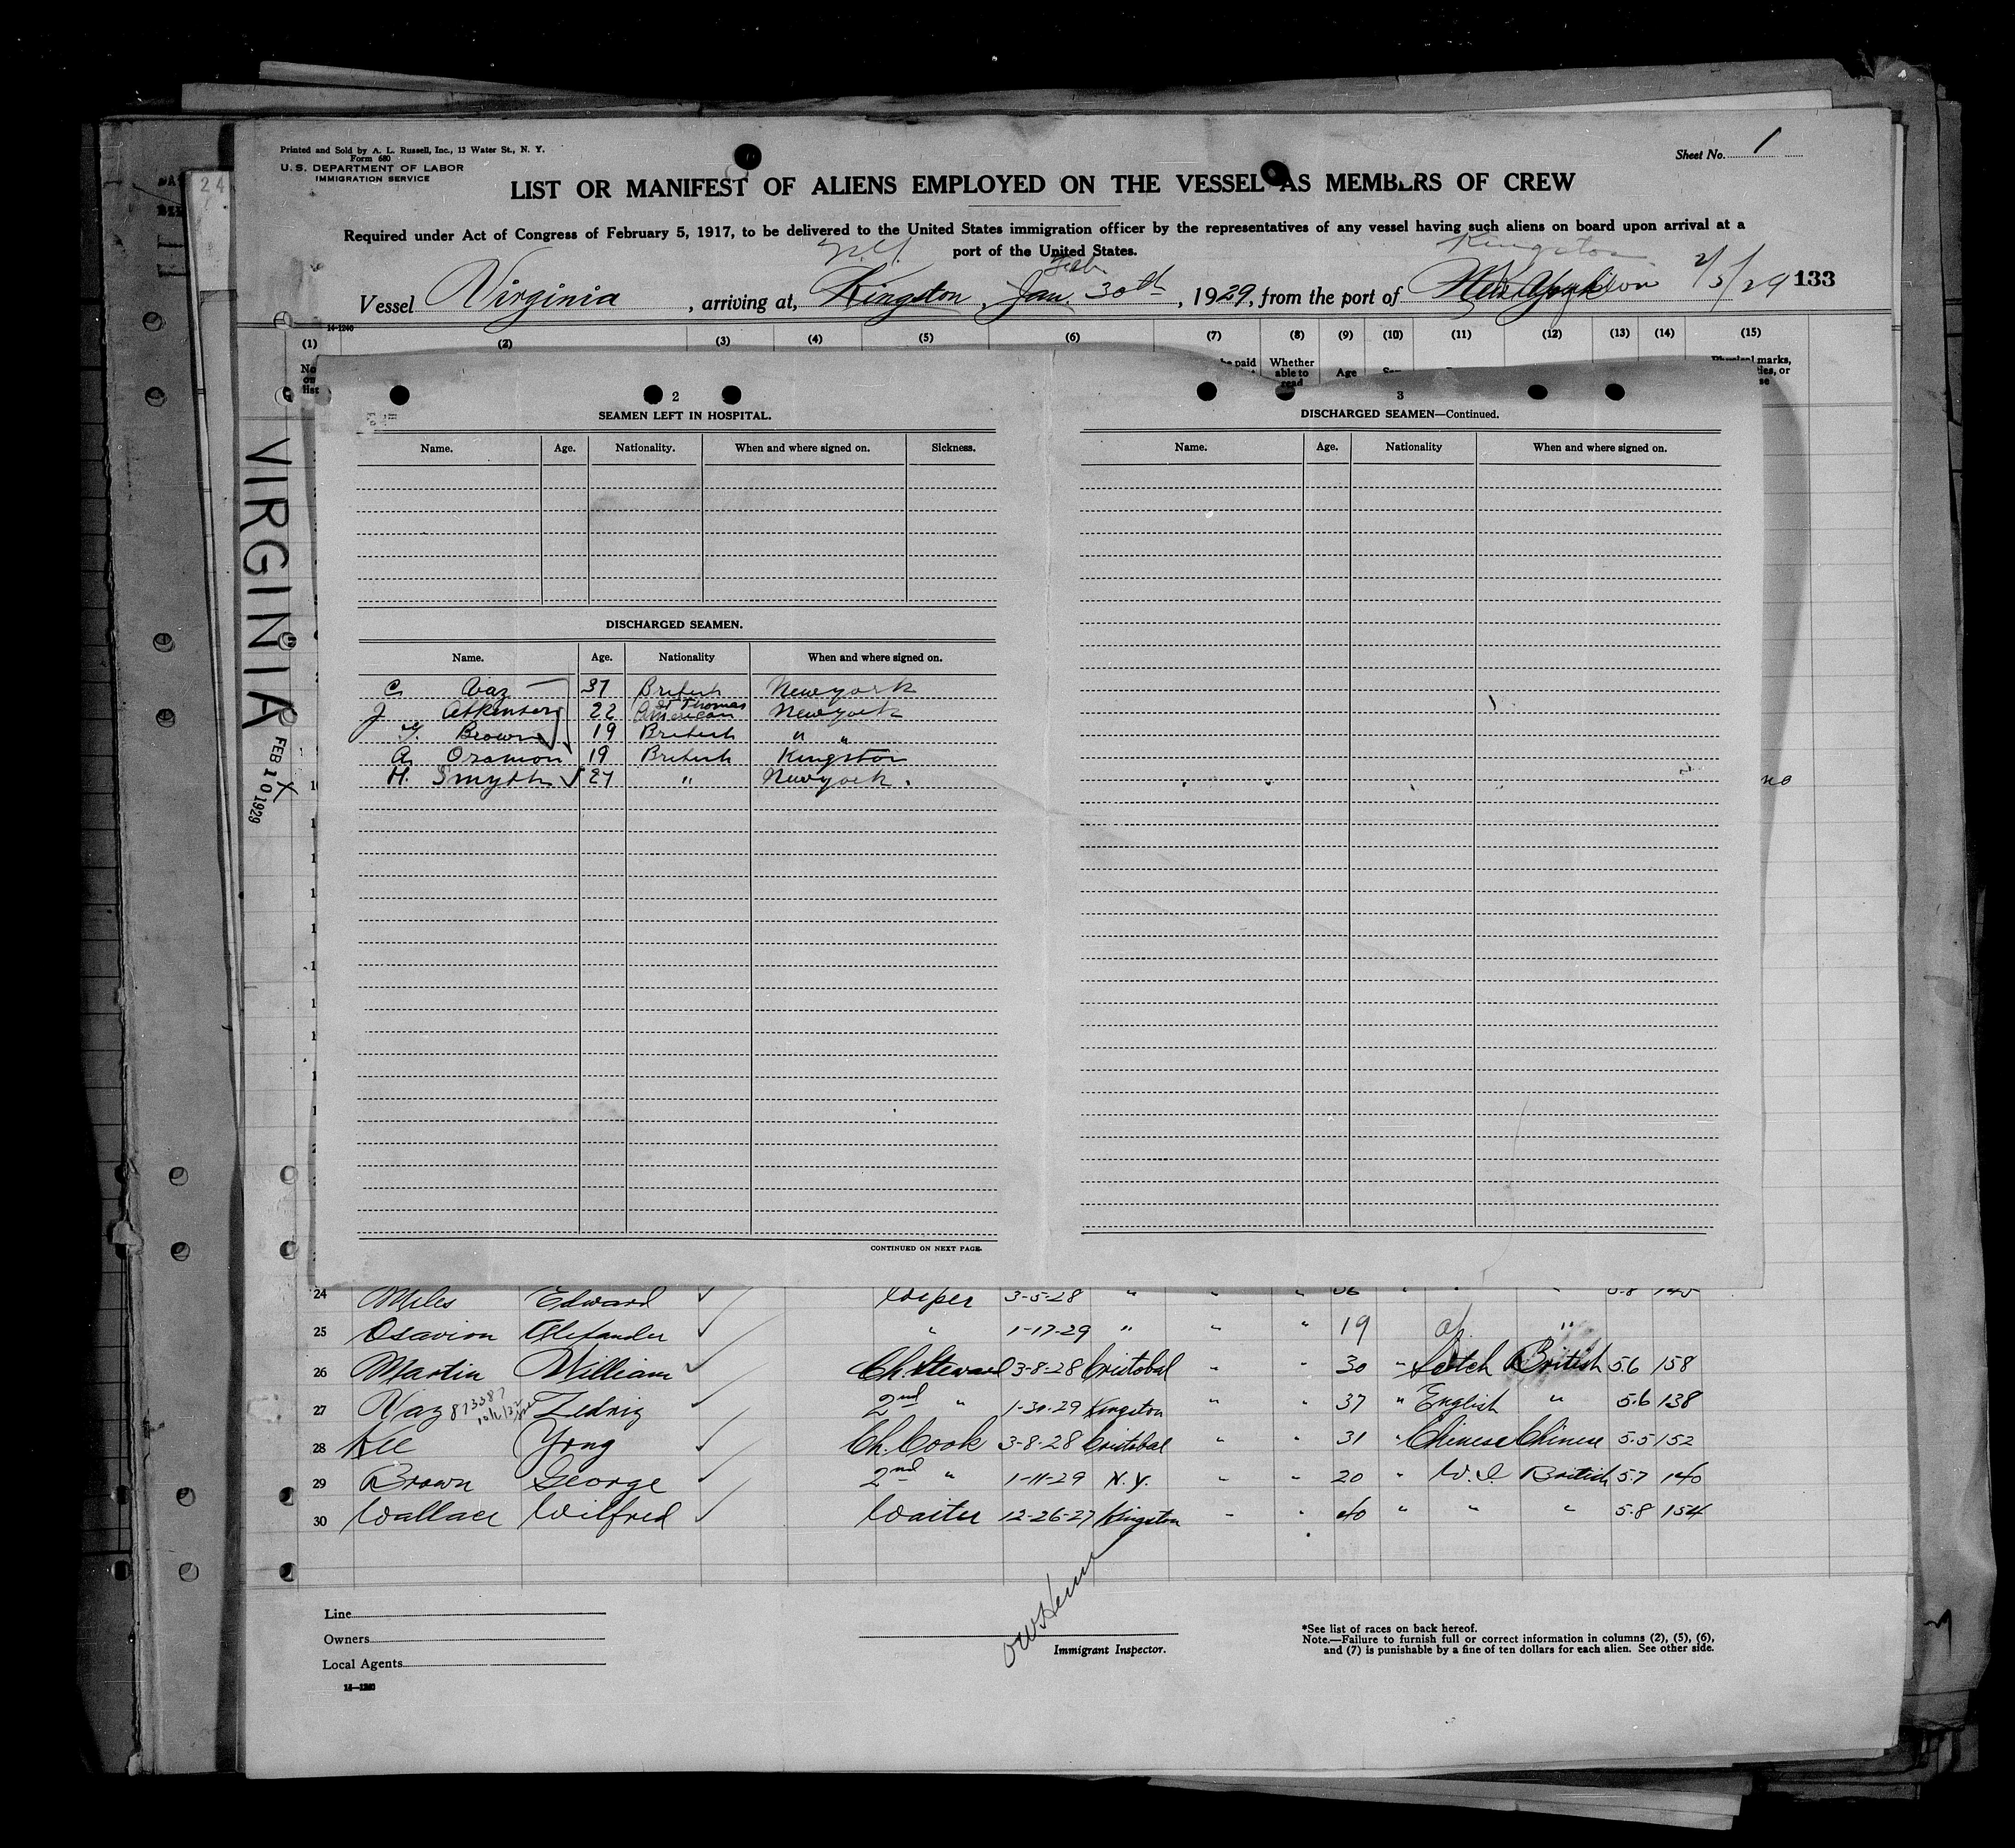 Printed and Sold by A. L. Russell, Inc., 13 Water St., N. Y.
Form 680
U. S. DEPARTMENT OF LABOR
IMMIGRATION SERVICE
Sheet No. 1
LIST OR MANIFEST OF ALIENS EMPLOYED ON THE VESSEL AS MEMBERS OF CREW
Required under Act of Congress of February 5, 1917, to be delivered to the United States immigration officer by the representatives of any vessel having such aliens on board upon arrival at a
port of the United States.
N.Y. Feb. Kingston
Vessel Virginia, arriving at, Kingston, Jan. 30th, 1929, from the port of 2/5/29 133
14-1240
(1) (2) (3) (4) (5) (6) (7) (8) (9) (10) (11) (12) (13) (14) (15)
No on list paid Whether able to read Age marks, or
VIRGINIA
FEB 10 1929
2
SEAMEN LEFT IN HOSPITAL.
Name. Age. Nationality. When and where signed on. Sickness.
DISCHARGED SEAMEN.
Name. Age. Nationality When and where signed on.
C. Vaz 37 British Newyork
J 22 St Thomas American Newyork
G. Brown 19 British " "
A. Oramon 19 British Kingston
H. Smyth 27 " Newyork.
CONTINUED ON NEXT PAGE.
3
DISCHARGED SEAMEN—Continued.
Name. Age. Nationality When and where signed on.
no
24 Miles Edward Wiper 3-5-28 " " "
25 Osavion Alexander " 1-17-29 " " " 19 af. "
26 Martin William Ch. Steward 3-8-28 Cristobal " " 30 " Scotch British 5.6 158
27 Vaz 873387 Zedniz 2nd " 1-30-29 Kingston " " 37 " English " 5.6 138
28 Kee Yong Ch. Cook 3-8-28 Cristobal " " 31 " Chinese Chinese 5.5 152
29 Brown George 2nd " 1-11-29 N.Y. " " 20 " W.I. British 5.7 140
30 Wallace Wilfred Waiter 12-26-27 Kingston " " 40 " " " 5.8 154
Line
Owners
Local Agents
14-1240
Immigrant Inspector.
*See list of races on back hereof.
Note.—Failure to furnish full or correct information in columns (2), (5), (6),
and (7) is punishable by a fine of ten dollars for each alien. See other side.